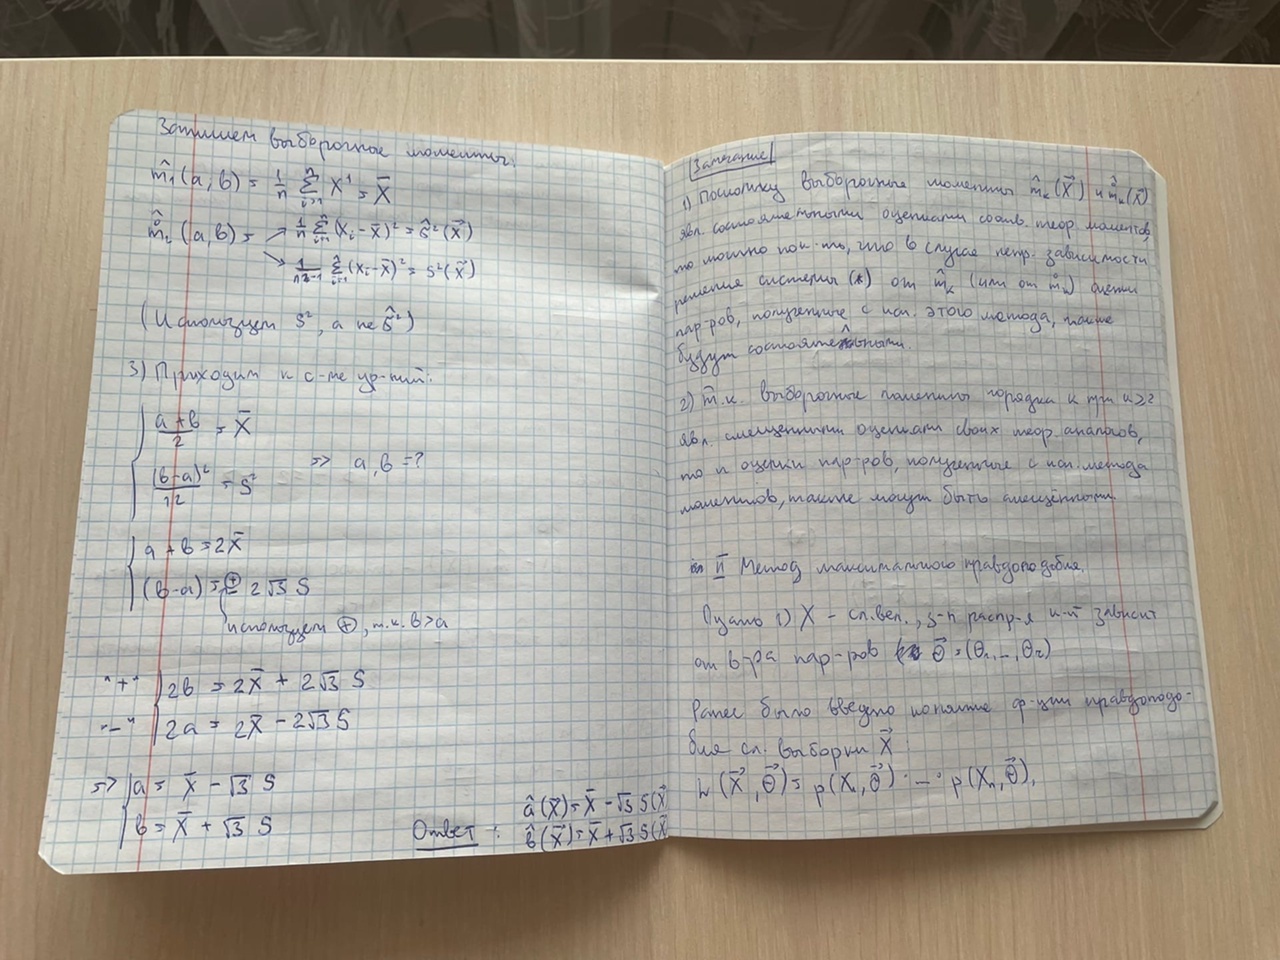 Запишем выборочные моменты:
m̂₁(a,b) = 1/n ∑ᵢ₌₁ⁿ X¹ = X̄
m̂̊₂(a,b) = → 1/n ∑ᵢ₌₁ⁿ (Xᵢ - X̄)² = σ̂²(X⃗)
→ 1/(n-1) ∑ᵢ₌₁ⁿ (Xᵢ - X̄)² = S²(X⃗)
(Используем S², а не σ̂²)
3) Приходим к с-ме ур-ний:
{ (a+b)/2 = X̄
(b-a)²/12 = S² => a, b = ?
{ a + b = 2X̄
(b-a) = ± 2√3 S
используем ⊕, т.к. b>a
"+" { 2b = 2X̄ + 2√3 S
"-" 2a = 2X̄ - 2√3 S
=> { a = X̄ - √3 S
b = X̄ + √3 S
Ответ: â(X⃗) = X̄ - √3 S(X⃗
b̂(X⃗) = X̄ + √3 S(X⃗
Замечание
1) Поскольку выборочные моменты m̂ₖ(X⃗) и m̂̊ₖ(X⃗)
явл. состоятельными оценками соотв. теор. моментов,
то можно пок-ть, что в случае непр. зависимости
решения системы (*) от m̂ₖ (или от m̊ₖ) оценки
пар-ров, полученные с исп. этого метода, также
будут состоятельными.
2) т.к. выборочные моменты порядка k при k≥2
явл. смещенными оценками своих теор. аналогов,
то и оценки пар-ров, полученные с исп. метода
моментов, также могут быть смещёнными.
II Метод максимального правдоподобия.
Дано 1) X - сл. вел., з-н распр-я к-й зависит
от в-ра пар-ров θ⃗ = (θ₁, ..., θᵣ)
Ранее было введено понятие ф-ции правдоподо-
бия сл. выборки X⃗:
L(X⃗, θ⃗) = p(X₁, θ⃗) · ... · p(Xₙ, θ⃗),